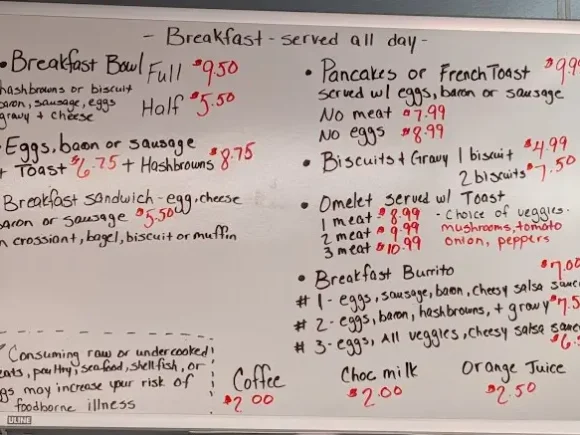 - Breakfast - served all day -
• Breakfast Bowl Full $9.50
hashbrowns or biscuit
bacon, sausage, eggs Half $5.50
gravy + cheese
Eggs, bacon or sausage
+ Toast $6.75 + Hashbrowns $8.75
Breakfast sandwich - egg, cheese
bacon or sausage $5.50
n crossiant, bagel, biscuit or muffin
• Pancakes or French Toast $9.99
served w/ eggs, bacon or sausage
No meat $7.99
No eggs $8.99
• Biscuits + Gravy 1 biscuit $4.99
2 biscuits $7.50
• Omelet served w/ Toast
1 meat $8.99 - Choice of veggies.
2 meat $9.99 mushrooms, tomato
3 meat $10.99 onion, peppers
• Breakfast Burrito $7.00
#1 - eggs, sausage, bacon, cheesy salsa sauce
#2 - eggs, bacon, hashbrowns, + gravy $7.5
#3 - eggs, All veggies, cheesy salsa sauce
$6.
Consuming raw or undercooked
eats, poultry, seafood, shellfish, or
gs may increase your risk of
foodborne illness
Coffee
$2.00
Choc milk
$2.00
Orange Juice
$2.50
ULINE